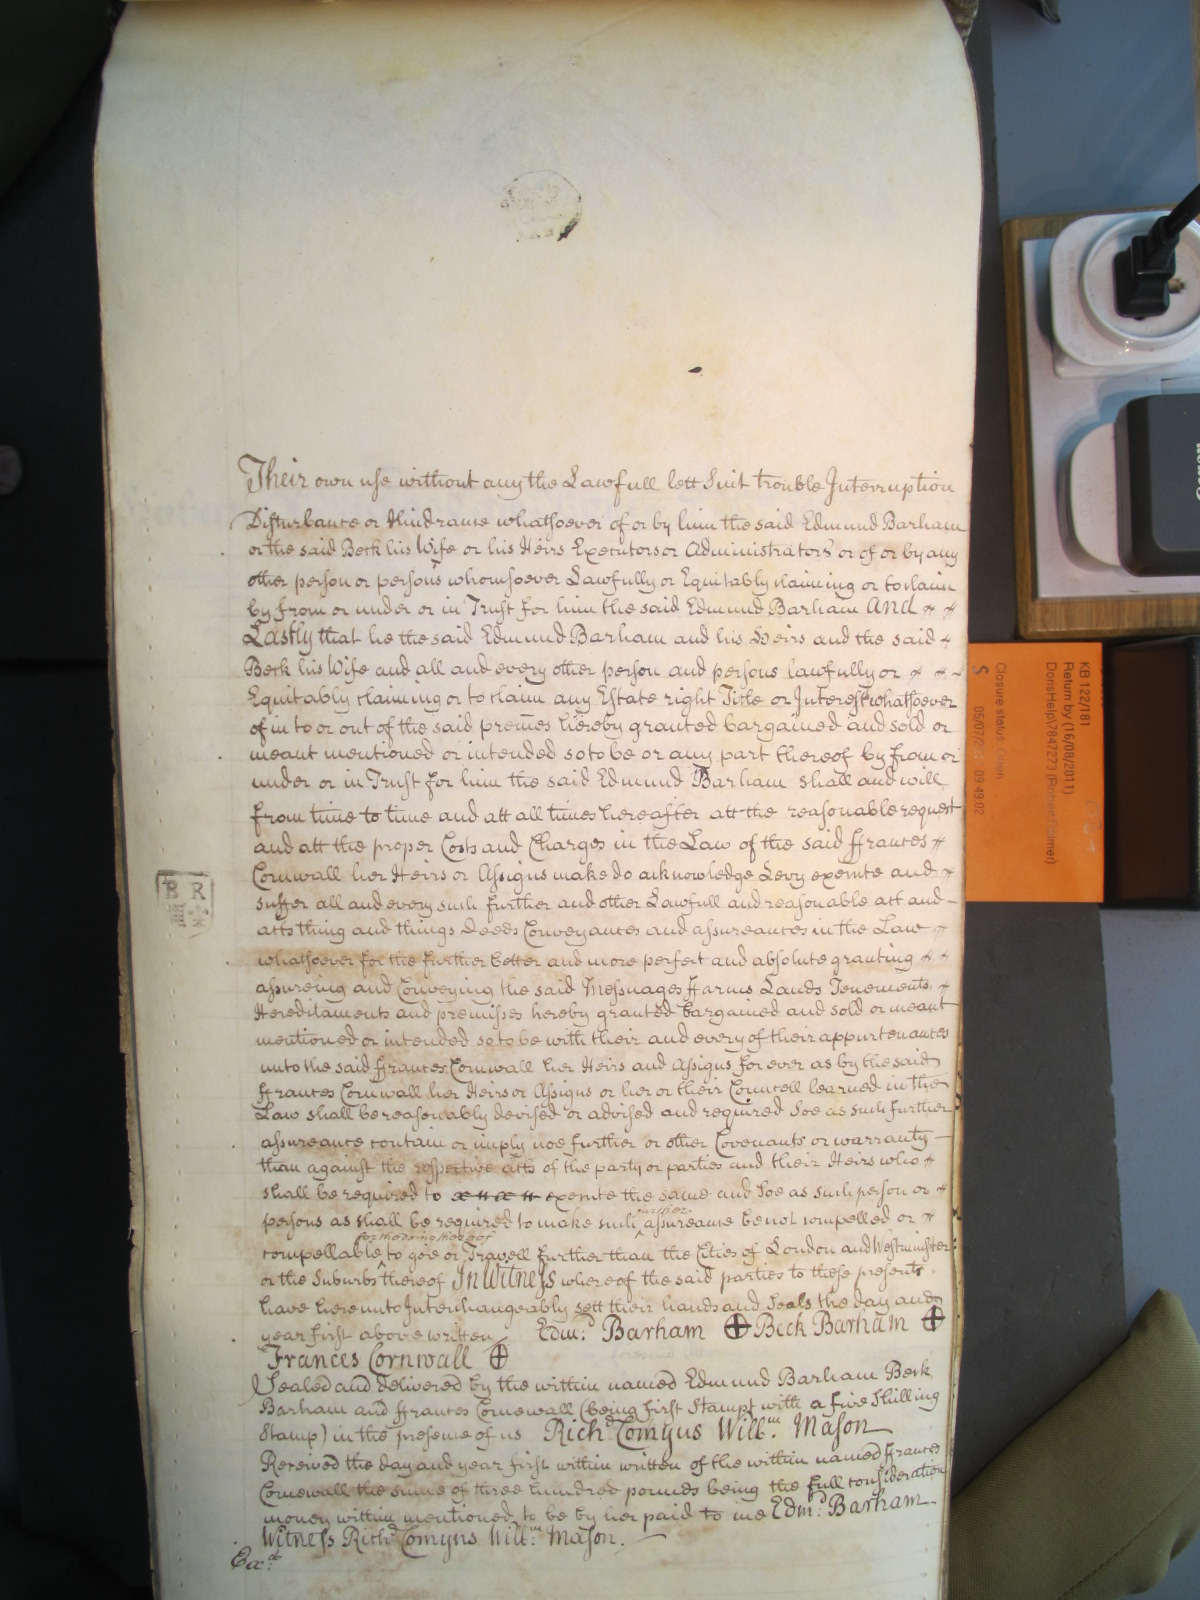 Their own use without any the Lawfull lett Suit trouble Interruption
Disturbance or Hindrance whatsoever of or by him the said Edmund Barham
or the said Beck his Wife or his Heirs Executors or Administrators or of or by any
other person or persons whomsoever Lawfully or Equitably claiming or to claim
by from or under or in Trust for him the said Edmund Barham And
Lastly that he the said Edmund Barham and his Heirs and the said
Beck his Wife and all and every other person and persons lawfully or
Equitably claiming or to claim any Estate right Title or Interest whatsoever
of in to or out of the said premes hereby granted bargained and sold or
meant mentioned or intended so to be or any part thereof by from or
under or in Trust for him the said Edmund Barham shall and will
from time to time and att all times hereafter att the reasonable request
and att the proper Costs and Charges in the Law of the said ffrances
Cornwall her Heirs or Assigns make do acknowledge Levy execute and
suffer all and every such further and other Lawfull and reasonable act and
acts thing and things Deeds Conveyances and assureances in the Law
whatsoever for the further better and more perfect and absolute granting
assureing and Conveying the said Messuages ffarms Lands Tenements
Hereditaments and premisses hereby granted bargained and sold or meant
mentioned or intended so to be with their and every of their appurtenances
unto the said ffrances Cornwall her Heirs and Assigns for ever as by the said
ffrances Cornwall her Heirs or Assigns or her or their Councell learned in the
Law shall be reasonably devised or advised and required Soe as such further
assureance contain or imply noe further or other Covenants or warranty
than against the respective acts of the party or parties and their Heirs who
shall be required to execute the same and Soe as such person or
persons as shall be required to make such further assureance be not compelled or
compellable to goe or Travell further than the Cities of London and Westminster
or the Suburbs thereof for the doing thereof In Witness whereof the said parties to these presents
have hereunto Interchangeably sett their hands and Seals the day and
year first above written Edm:d Barham Beck Barham
Frances Cornwall
Sealed and delivered by the within named Edmund Barham Beck
Barham and ffrances Cornewall (being first Stampt with a five Shilling
Stamp) in the presence of us Rich:d Comyns Will:m Mason
Received the day and year first within written of the within named ffrances
Cornewall the summe of three hundred pounds being the full consideration
money within mentioned to be by her paid to me Edm:d Barham
Witness Rich:d Comyns Will:m Mason.
Ex:d
B R
KB 122/181
Return by (16/08/2011)
Closure status: Open
05/07/2 09:49:02
S
Canon